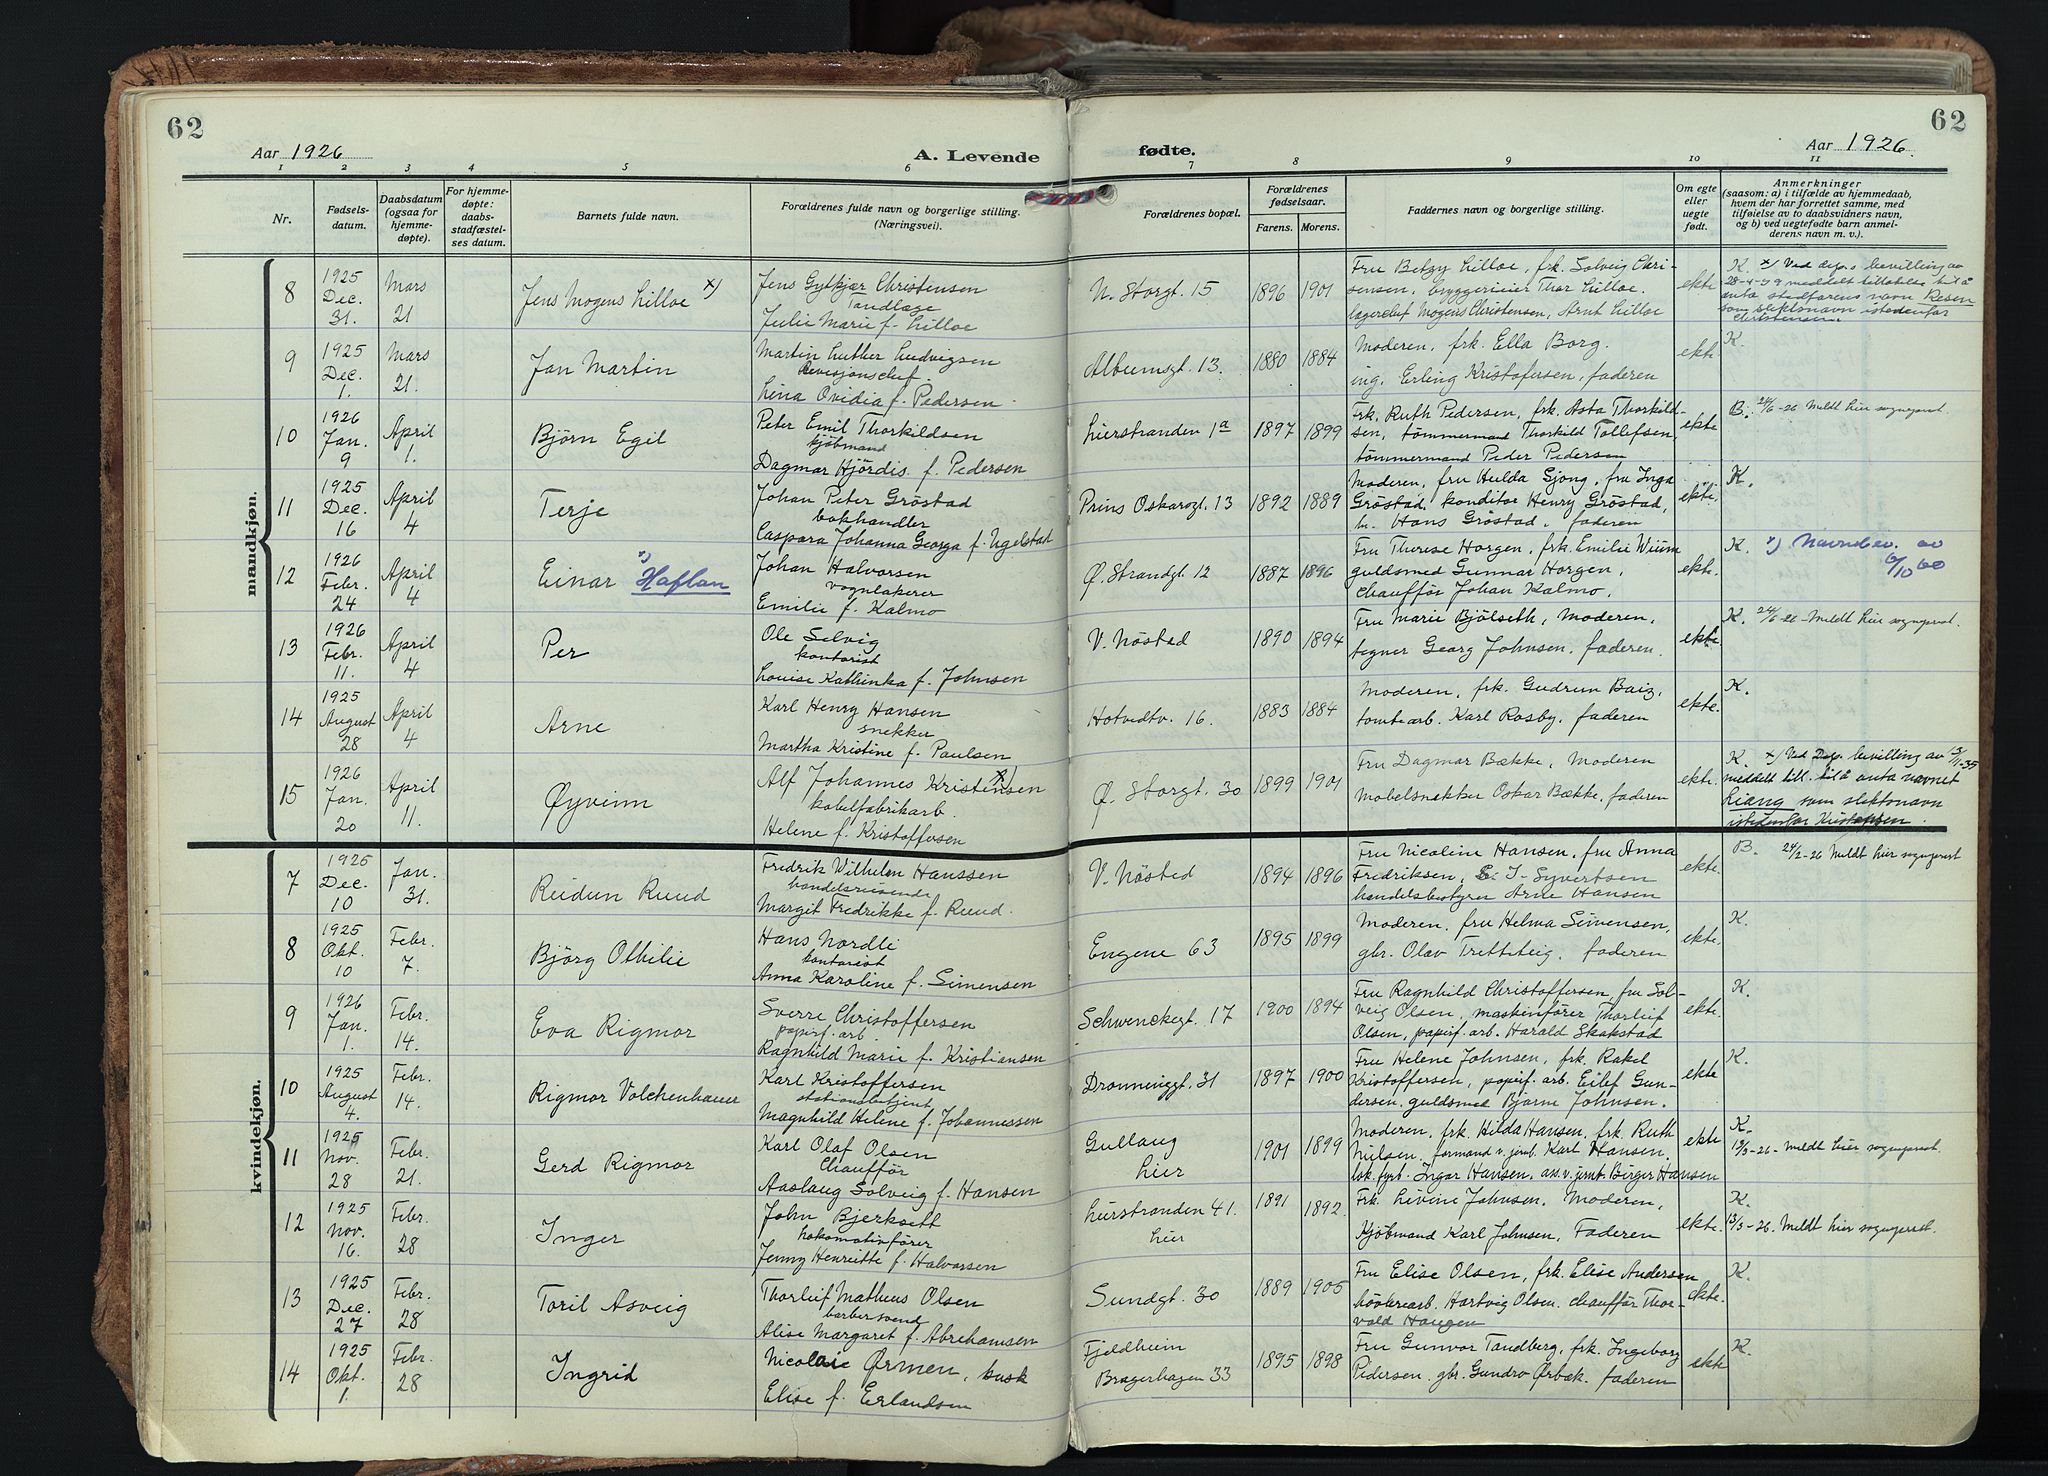 62
Aar 1926
A. Levende
fødte.
Aar 1926.
62
1 2 3 4 5 6 7 8 9 10 11
Nr.
Fødsels-
datum.
Daabsdatum
(ogsaa for
hjemme-
døpte).
For hjemme-
døpte:
daabs-
stadfæstel-
ses datum.
Barnets fulde navn.
Forældrenes fulde navn og borgerlige stilling.
(Næringsvei).
Forældrenes bopæl.
Forældrenes
fødselsaar.
Farens. Morens.
Faddernes navn og borgerlige stilling.
Om egte
eller
uegte
født.
Anmerkninger
(saasom: a) i tilfælde av hjemmedaab,
hvem der har forrettet samme, med
tilføielse av to daabsvidners navn,
og b) ved uegtefødte barn anmel-
derens navn m. v.).
mandkjøn.
8
1925
Dec.
31.
Mars
21
Jens Mogens Lilloe x)
Jens Gylkjær Christensen
Tandlæge
Julie Marie f. Lilloe
N. Storgt. 15
1896 1901
Fru Betzy Lilloe, frk. Solveig Chri-
stensen, bryggerieier Thor Lilloe.
lagerchef Mogens Christensen, Arnt Lilloe
ekte
K. x) Ved dep.s bevilling av
meddelt tillatelse til å
anta stedfarens navn Resen
som slektsnavn istedenfor
Christensen
9
1925
Dec.
1.
Mars
21.
Jan Martin
Martin Luther Ludvigsen
Revisjonschef.
Lina Ovidia f. Pedersen
Albumsgt. 13.
1880 1884
Moderen, frk. Ella Borg.
ing. Erling Kristofersen, faderen
ekte.
K.
10
1926
Jan.
9
April
1.
Bjørn Egil
Peter Emil Thorkildsen
kjøbmand
Dagmar Hjördis f. Pedersen
Lierstranden 1a
1897 1899
Frk. Ruth Pedersen, frk. Asta Thorkild-
sen, tømmermand Thorkild Tollefsen,
tømmermand Peder Pedersen
ekte
B. 24/6-26 Meldt Lier sogneprest.
11
1925
Dec.
16
April
4
Terje
Johan Peter Gröstad
bokhandler
Caspara Johanna Georga f. Ugelstad
Prins Oskarsgt. 13
1892 1889
Moderen, fru Hulda Gjong, fru Inga
Gröstad, konditor Henry Gröstad,
hr. Hans Gröstad, faderen
ekte.
K.
12
1926
Febr.
24
April
4
Einar x) Haflan
Johan Halvorsen
vognlakerer
Emilie f. Kalmo
Ø. Strandgt. 12
1887 1896
Fru Therese Horgen, frk. Emilie Wium
guldsmed Gunnar Horgen,
Chauffør Johan Kalmo.
ekte.
K. x) Navnebev. av
6/10 60
13
1926
Febr.
11.
April
4
Per
Ole Selvig
kontorist
Louise Kathinka f. Johnsen
V. Nøsted
1890 1894
Fru Marie Bjölseth, Moderen,
tegner Georg Johnsen, faderen.
ekte
K. 24/6-26 Meldt Lier sogneprest.
14
1925
August
28
April
4
Arne
Karl Henry Hansen
snekker
Martha Kristine f. Paulsen
Hotvedtv. 16.
1883 1884
Moderen, frk. Gudrun Baiz,
tomtearb. Karl Rosby, faderen
ekte.
K.
15
1926
Jan.
20
April
11.
Øyvinn
Alf Johannes Kristensen x)
kabelfabrikarb.
Helene f. Kristoffersen
Ø. Storgt. 30
1899 1901
Fru Dagmar Bække, Moderen
Møbelsnekker Oskar Bække, faderen
ekte.
K. x) Ved Dep. bevilling av 13/11-35
meddelt till. til å anta navnet
Liang som slektsnavn
istedenfor Kristensen.
kvindekjøn.
7
1925
Dec.
10
Jan.
31.
Reidun Ruud
Fredrik Wilhelm Hanssen
handelsreisende
Margit Fredrikke f. Ruud.
V. Nøsted
1894 1896
Fru Nicoline Hansen, fru Anna
Fredriksen, Syvertsen
handelsbestyrer Arne Hansen
ekte.
B. 24/2-26 Meldt hier sogneprest
8
1925
Okt.
10
Febr.
7.
Björg Othilie
Hans Nordli
kontorist
Anna Karoline f. Simensen
Engene 63
1895 1899
Moderen, fru Helma Simensen,
gbr. Olav Tretteteig, faderen
ekte.
K.
9
1926
Jan.
1.
Febr.
14.
Eva Rigmor
Sverre Christoffersen
papirf. arb.
Ragnhild Marie f. Kristiansen
Schwenckegt. 17
1900 1894
Fru Ragnhild Christoffersen, fru Sol-
veig Olsen, maskinfører Thorleif
Olsen, papirf. arb. Harald Skakstad
ekte.
K.
10
1925
August
4.
Febr.
14.
Rigmor Volckenhauer
Karl Kristoffersen
stationsbetjent
Magnhild Helene f. Johannessen
Dronninggt. 31
1897 1900
Fru Helene Johnsen, frk. Rakel
Kristoffersen, papirf. arb. Eilef Gun-
dersen, guldsmed Bjarne Johnsen.
ekte
K.
11
1925
Nov.
28
Febr.
21.
Gerd Rigmor
Karl Olaf Olsen
Chauffør
Aaslaug Solveig f. Hansen
Gullaug
Lier
1901 1899
Moderen, frk. Hilda Hansen, frk. Ruth
Nielsen, formand v. jernb. Karl Hansen,
lok. fyrb. Ingar Hansen, ass. v. jernb. Birger Hansen
ekte
K.
13/3-26- Meldt Lier sogneprest.
12
1925
Nov.
16.
Febr.
28
Inger
John Bjerksett
Lokomotivfører
Jenny Henriette f. Halvorsen
Lierstranden 41.
Lier
1891 1892
Frk. Livine Johnsen, Moderen,
Kjøbmand Karl Johnsen, Faderen
ekte.
K.
13/3-26. Meldt Lier sogneprest.
13
1925
Dec.
27
Febr.
28
Toril Asveig
Thorleif Matheus Olsen
barbersvend
Alise Margaret f. Abrahamsen
Sundgt. 30
1889 1905
Fru Elise Olsen, frk. Elise Andersen
høvleriarb. Hartvig Olsen, chauffør Thor-
vald Haugen
ekte.
K.
14
1925
Okt.
1.
Febr.
28
Ingrid
Nicolaie Ørmen, busk
Elise f. Erlandsen
Fjeldheim
Bragerhagen 33
1895 1898
Fru Gunvor Tandberg, frk. Ingeborg
Pedersen, gbr. Gundro Ørbæk. faderen
ekte
K.